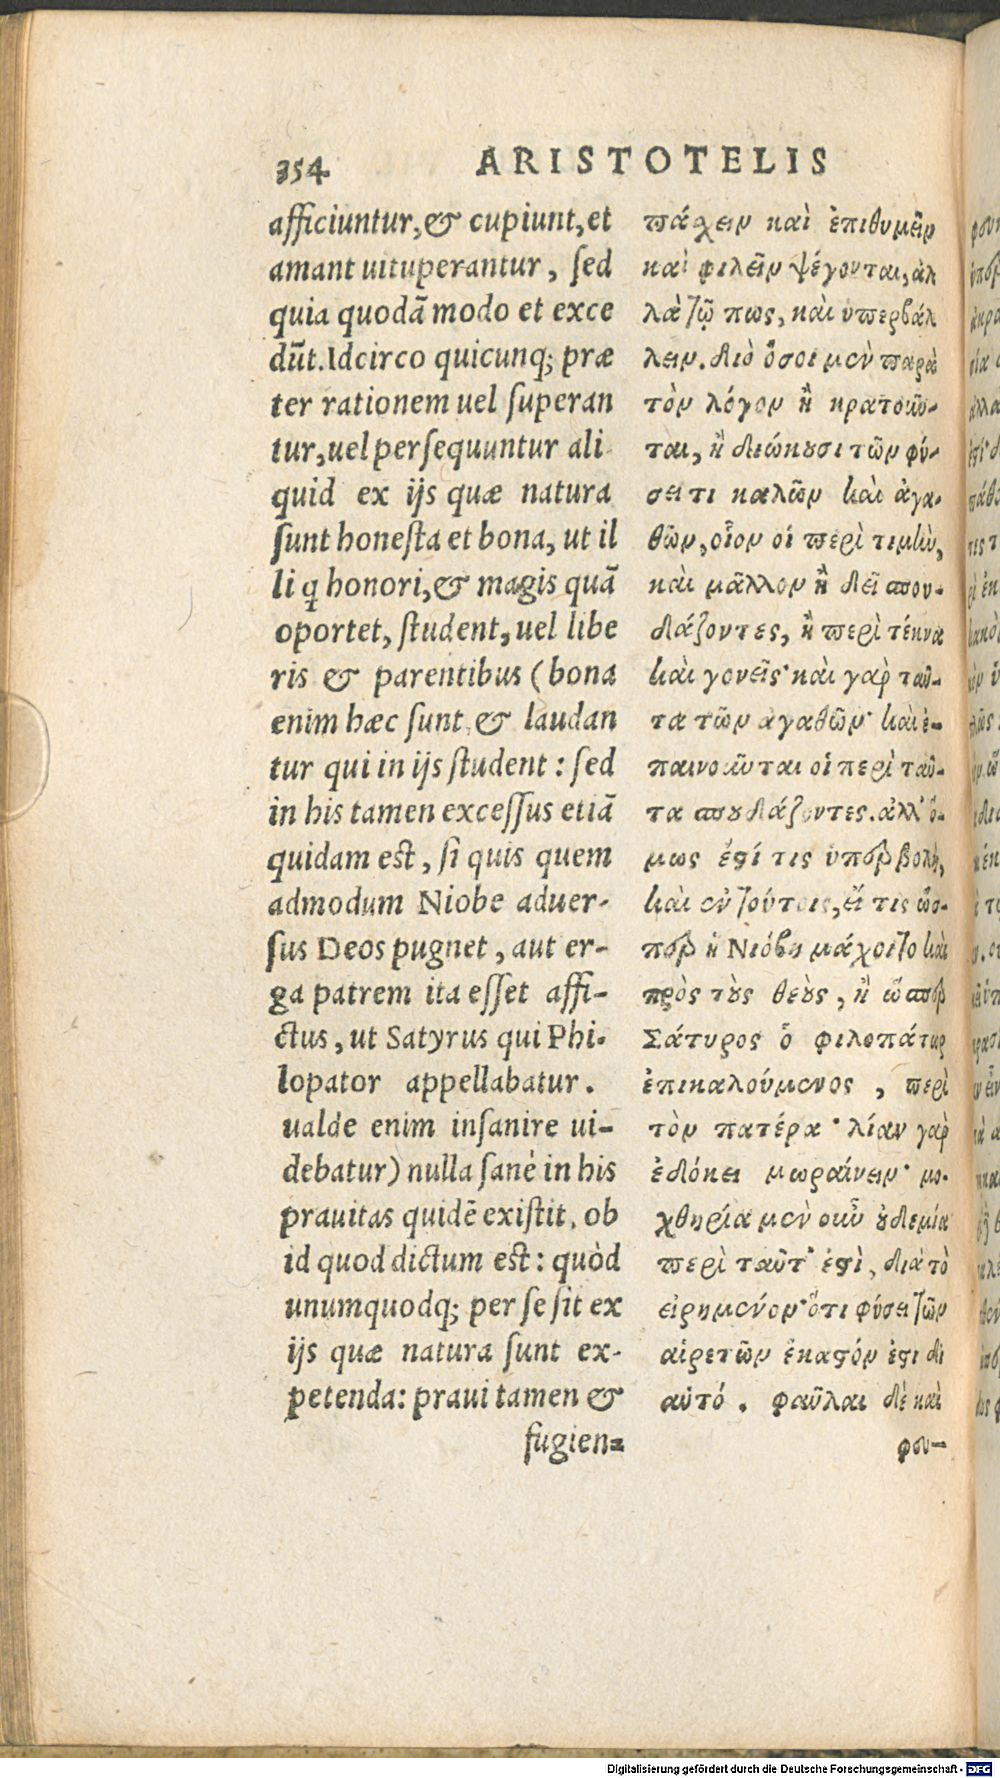 354 ARISTOTELIS
afficiuntur, & cupiunt, et
amant uituperantur, ſed
quia quodā modo et exce
dūt. Idcirco quicunq; præ
ter rationem uel ſuperan
tur, uel perſequuntur ali
quid ex ijs quæ natura
ſunt honeſta et bona, ut il
li q honori, & magis quā
oportet, ſtudent, uel libe
ris & parentibus (bona
enim hæc ſunt & laudan
tur qui in ijs ſtudent: ſed
in his tamen exceſſus etiā
quidam eſt, ſi quis quem
admodum Niobe aduer-
ſus Deos pugnet, aut er-
ga patrem ita eſſet affi-
ctus, ut Satyrus qui Phi-
lopator appellabatur.
ualde enim inſanire ui-
debatur) nulla ſanè in his
prauitas quidē exiſtit, ob
id quod dictum eſt: quòd
unumquodq; per ſe ſit ex
ijs quæ natura ſunt ex-
petenda: praui tamen &
fugien-
πάχειν καὶ ἐπιθυμεῖν
καὶ φιλεῖν ψέγονται, ἀλ
λὰ τῷ πως, καὶ ὑπερβάλ
λειν. διὸ ὅσοι μὲν παρὰ
τὸν λόγον ἢ κρατοῦν-
ται, ἢ διώκουσι τῶν φύ-
σει τι καλῶν καὶ ἀγα-
θῶν, οἷον οἱ περὶ τιμὴν,
καὶ μᾶλλον ἢ δεῖ σπου-
δάζοντες, ἢ περὶ τέκνα
καὶ γονεῖς· καὶ γὰρ ταῦ-
τα τῶν ἀγαθῶν· καὶ ἐ-
παινοῦνται οἱ περὶ ταῦ-
τα σπουδάζοντες. ἀλλ' ὅ-
μως ἐστί τις ὑπερβολὴ,
καὶ ἐν τούτοις, εἴ τις ὥσ-
περ ἡ Νιόβη μάχοιτο καὶ
πρὸς τοὺς θεοὺς, ἢ ὥσπερ
Σάτυρος ὁ φιλοπάτωρ
ἐπικαλούμενος, περὶ
τὸν πατέρα· λίαν γὰρ
ἐδόκει μωραίνειν· μο-
χθηρία μὲν οὖν οὐδεμία
περὶ ταῦτ' ἐστὶ, διὰ τὸ
εἰρημένον· ὅτι φύσει τῶν
αἱρετῶν ἕκαστόν ἐστι δι
αὑτό. φαῦλαι δὲ καὶ
φευ-
Digitalisierung gefördert durch die Deutsche Forschungsgemeinschaft - DFG